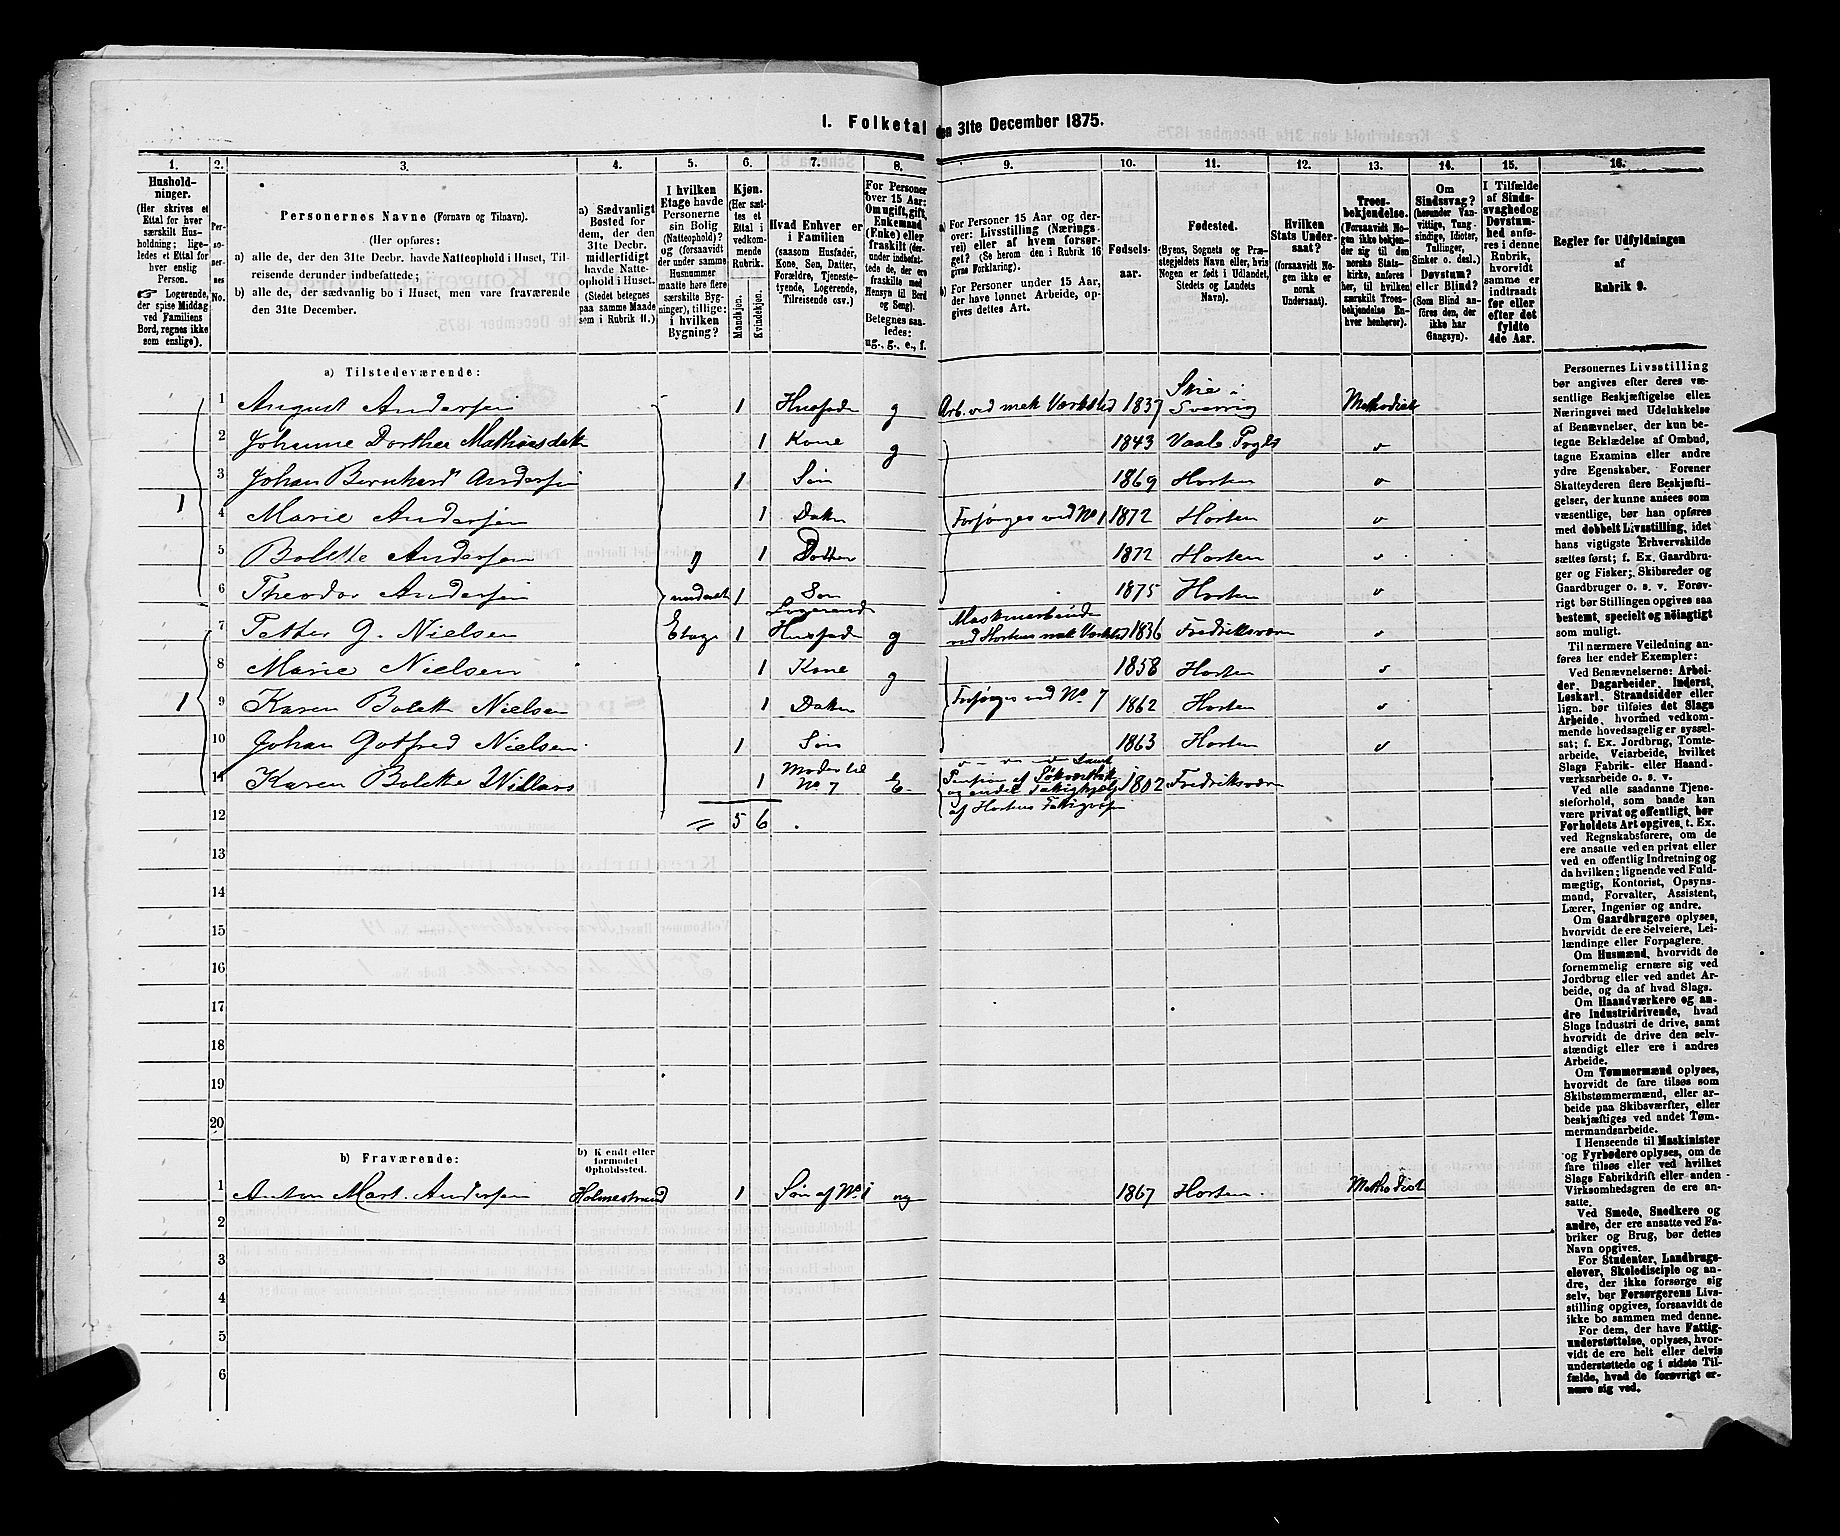 1. Folketal den 31te December 1875.
1. 2. 3. 4. 5. 6. 7. 8. 9. 10. 11. 12. 13. 14. 15. 16.
Hushold-
ninger.
(Her skrives et
Ettal for hver
særskilt Hus-
holdning; lige-
ledes et Ettal for
hver enslig
Person.
☞ Logerende,
der spise Middag
ved Familiens
Bord, regnes ikke
som enslige).
Per-
so-
ner-
nes
No.
Personernes Navne (Fornavn og Tilnavn).
(Her opføres:
a) alle de, der den 31te Decbr. havde Natteophold i Huset, Til-
reisende derunder indbefattede;
b) alle de, der sædvanlig bo i Huset, men vare fraværende
den 31te December.
a) Sædvanligt
Bosted for
dem, der den
31te Decbr.
midlertidigt
havde Natte-
ophold i Huset.
(Stedet betegnes
paa samme Maade
som i Rubrik 11.)
I hvilken
Etage havde
Personerne
sin Bolig
(Natteophold)?
(forsaavidt
der under samme
Husnummer
maatte høre flere
særskilte Byg-
ninger), tillige:
i hvilken
Bygning?
Kjøn.
(Her sæt-
tes et
Ettal i
vedkom-
mende
Rubrik.
Mandkjøn.
Kvindekjøn.
Hvad Enhver er
i Familien
(saasom Husfader,
Kone, Søn, Datter,
Forældre, Tjeneste-
tyende, Logerende,
Tilreisende osv.)
For Personer
over 15 Aar:
Om ugift, gift,
Enkemand
(Enke) eller
fraskilt (der-
under indbefat-
tede de, der ere
fraskilte med
Hensyn til Bord
og Seng).
Betegnes saa-
ledes:
ug., g., e., f.
a) For Personer 15 Aar og der-
over: Livsstilling (Nærings-
vei) eller af hvem forsør-
get? (Se herom den i Rubrik 16
givne Forklaring).
b) For Personer under 15 Aar,
der have lønnet Arbeide, op-
gives dettes Art.
Fødsels-
aar.
Fødested.
(Byens, Sognets og Præ-
stegjeldets Navn eller, hvis
Nogen er født i Udlandet,
Stedets og Landets
Navn).
Hvilken
Stats Under-
saat?
(forsaavidt No-
gen ikke er
norsk
Undersaat).
Troes-
bekjendelse.
(Forsaavidt No-
gen ikke bekjen-
der sig til den
norske Stats-
kirke, anføres
her, til hvilken
særskilt Troes-
bekjendelse En-
hver henhører).
Om
Sindssvag?
(herunder Van-
vittige, Tung-
sindige, Idioter,
Tullinger,
Sinker o. desl.)
Døvstum?
eller Blind?
(Som Blind an-
føres den, der
ikke har
Gangsyn).
I Tilfælde
af Sinds-
svaghed og
Døvstum-
hed anfø-
res i denne
Rubrik,
hvorvidt
samme er
indtraadt
før eller
efter det
fyldte
4de Aar.
Regler for Udfyldningen
af
Rubrik 9.
a) Tilstedeværende:
1 August Andersen 1 Husfader g Arb. ved mek Værksted 1837 Skie i Sverrig Methodist
2 Johanne Dorthea Mathiasdatter 1 Kone g 1843 Vaale Pgld
3 Johan Bernhard Andersen 1 Søn 1869 Horten
1 4 Marie Andersen 1 Datter Forsørges ved No 1 1872 Horten
5 Bolette Andersen 1 Dotter 1872 Horten
6 Theodor Andersen nederste 1 Søn 1875 Horten
7 Petter G. Nielsen Etage 1 Logerende Husfader g Maskinarbeider ved Hortens mek Værksted 1836 Fredriksværn
8 Marie Nielsen 1 Kone g 1858 Horten
1 9 Karen Bolette Nielsen 1 Datter Forsørges ved No. 7 1862 Horten
10 Johan Gotfred Nielsen 1 Søn 1863 Horten
11 Karen Bolette 1 Moder til No 7 E. Pension af af Hortens 1802 Fredriksværn
12 5 6
13
14
15
16
17
18
19
20
b) Fraværende:
b) Kjendt eller
formodet
Opholdssted.
1 Anton Mart. Andersen Holmestrand 1 Søn af No. 1 ug 1867 Horten. Methodist
2
3
4
5
6
Personernes Livsstilling
bør angives efter deres væ-
sentlige Beskjæftigelse eller
Næringsvei med Udelukkelse
af Benævnelser, der kun be-
tegne Beklædelse af Ombud,
tagne Examina eller andre
ydre Egenskaber. Forener
Skatteyderen flere Beskjæfti-
gelser, der kunne ansees som
væsentlige, bør han opføres
med dobbelt Livsstilling, idet
hans vigtigste Erhvervskilde
sættes først; f. Ex. Gaardbru-
ger og Fisker; Skibsreder og
Gaardbruger o. s. v. Forøv-
rigt bør Stillingen opgives saa
bestemt, specielt og nøiagtigt
som muligt.
Til nærmere Veiledning an-
føres her endel Exempler:
Ved Benævnelserne: Arbei-
der, Dagarbeider, Inderst,
Løskarl, Strandsidder eller
lign. bør tilføies det Slags
Arbeide, hvormed vedkom-
mende hovedsagelig er syssel-
sat; f. Ex. Jordbrug, Tomte-
arbeide, Veiarbeide, hvilket
Slags Fabrik- eller Haand-
værksarbeide o. s. v.
Ved alle saadanne Tjene-
steforhold, som baade kan
være privat og offentligt, bør
Forholdets Art opgives, t. Ex.
ved Regnskabsførere, om de
ere ansatte ved en privat eller
ved en offentlig Indretning og
da hvilken; lignende ved Fuld-
mægtig, Kontorist, Opsyns-
mand, Forvalter, Assistent,
Lærer, Ingeniør og andre.
Om Gaardbrugere oplyses,
hvorvidt de ere Selveiere, Lei-
lændinge eller Forpagtere.
Om Husmænd, hvorvidt de
fornemmelig ernære sig ved
Jordbrug eller ved andet Ar-
beide, og da af hvad Slags.
Om Haandværkere og an-
dre Industridrivende, hvad
Slags Industri de drive, samt
hvorvidt de drive den selv-
stændigt eller ere i andres
Arbeide.
Om Tømmermænd oplyses,
hvorvidt de fare tilsøs som
Skibstømmermænd, eller ar-
beide paa Skibsværfter, eller
beskjæftiges ved andet Tøm-
mermandsarbeide.
I Henseende til Maskinister
og Fyrbødere oplyses, om de
fare tilsøs eller ved hvilket
Slags Fabrikdrift eller anden
Virksomhedsgren de ere an-
satte.
Ved Smede, Snedkere og
andre, der ere ansatte ved Fa-
briker og Brug, bør dettes
Navn opgives.
For Studenter, Landbrugs-
elever, Skoledisciple og an-
dre, der ikke forsørge sig
selv, bør Forsørgerens Livs-
stilling opgives, forsaavidt de
ikke bo sammen med denne.
For dem, der have Fattig-
understøttelse, oplyses, hvor-
vidt de ere helt eller delvis
understøttede og i sidste Til-
fælde, hvad de forøvrigt er-
nære sig ved.